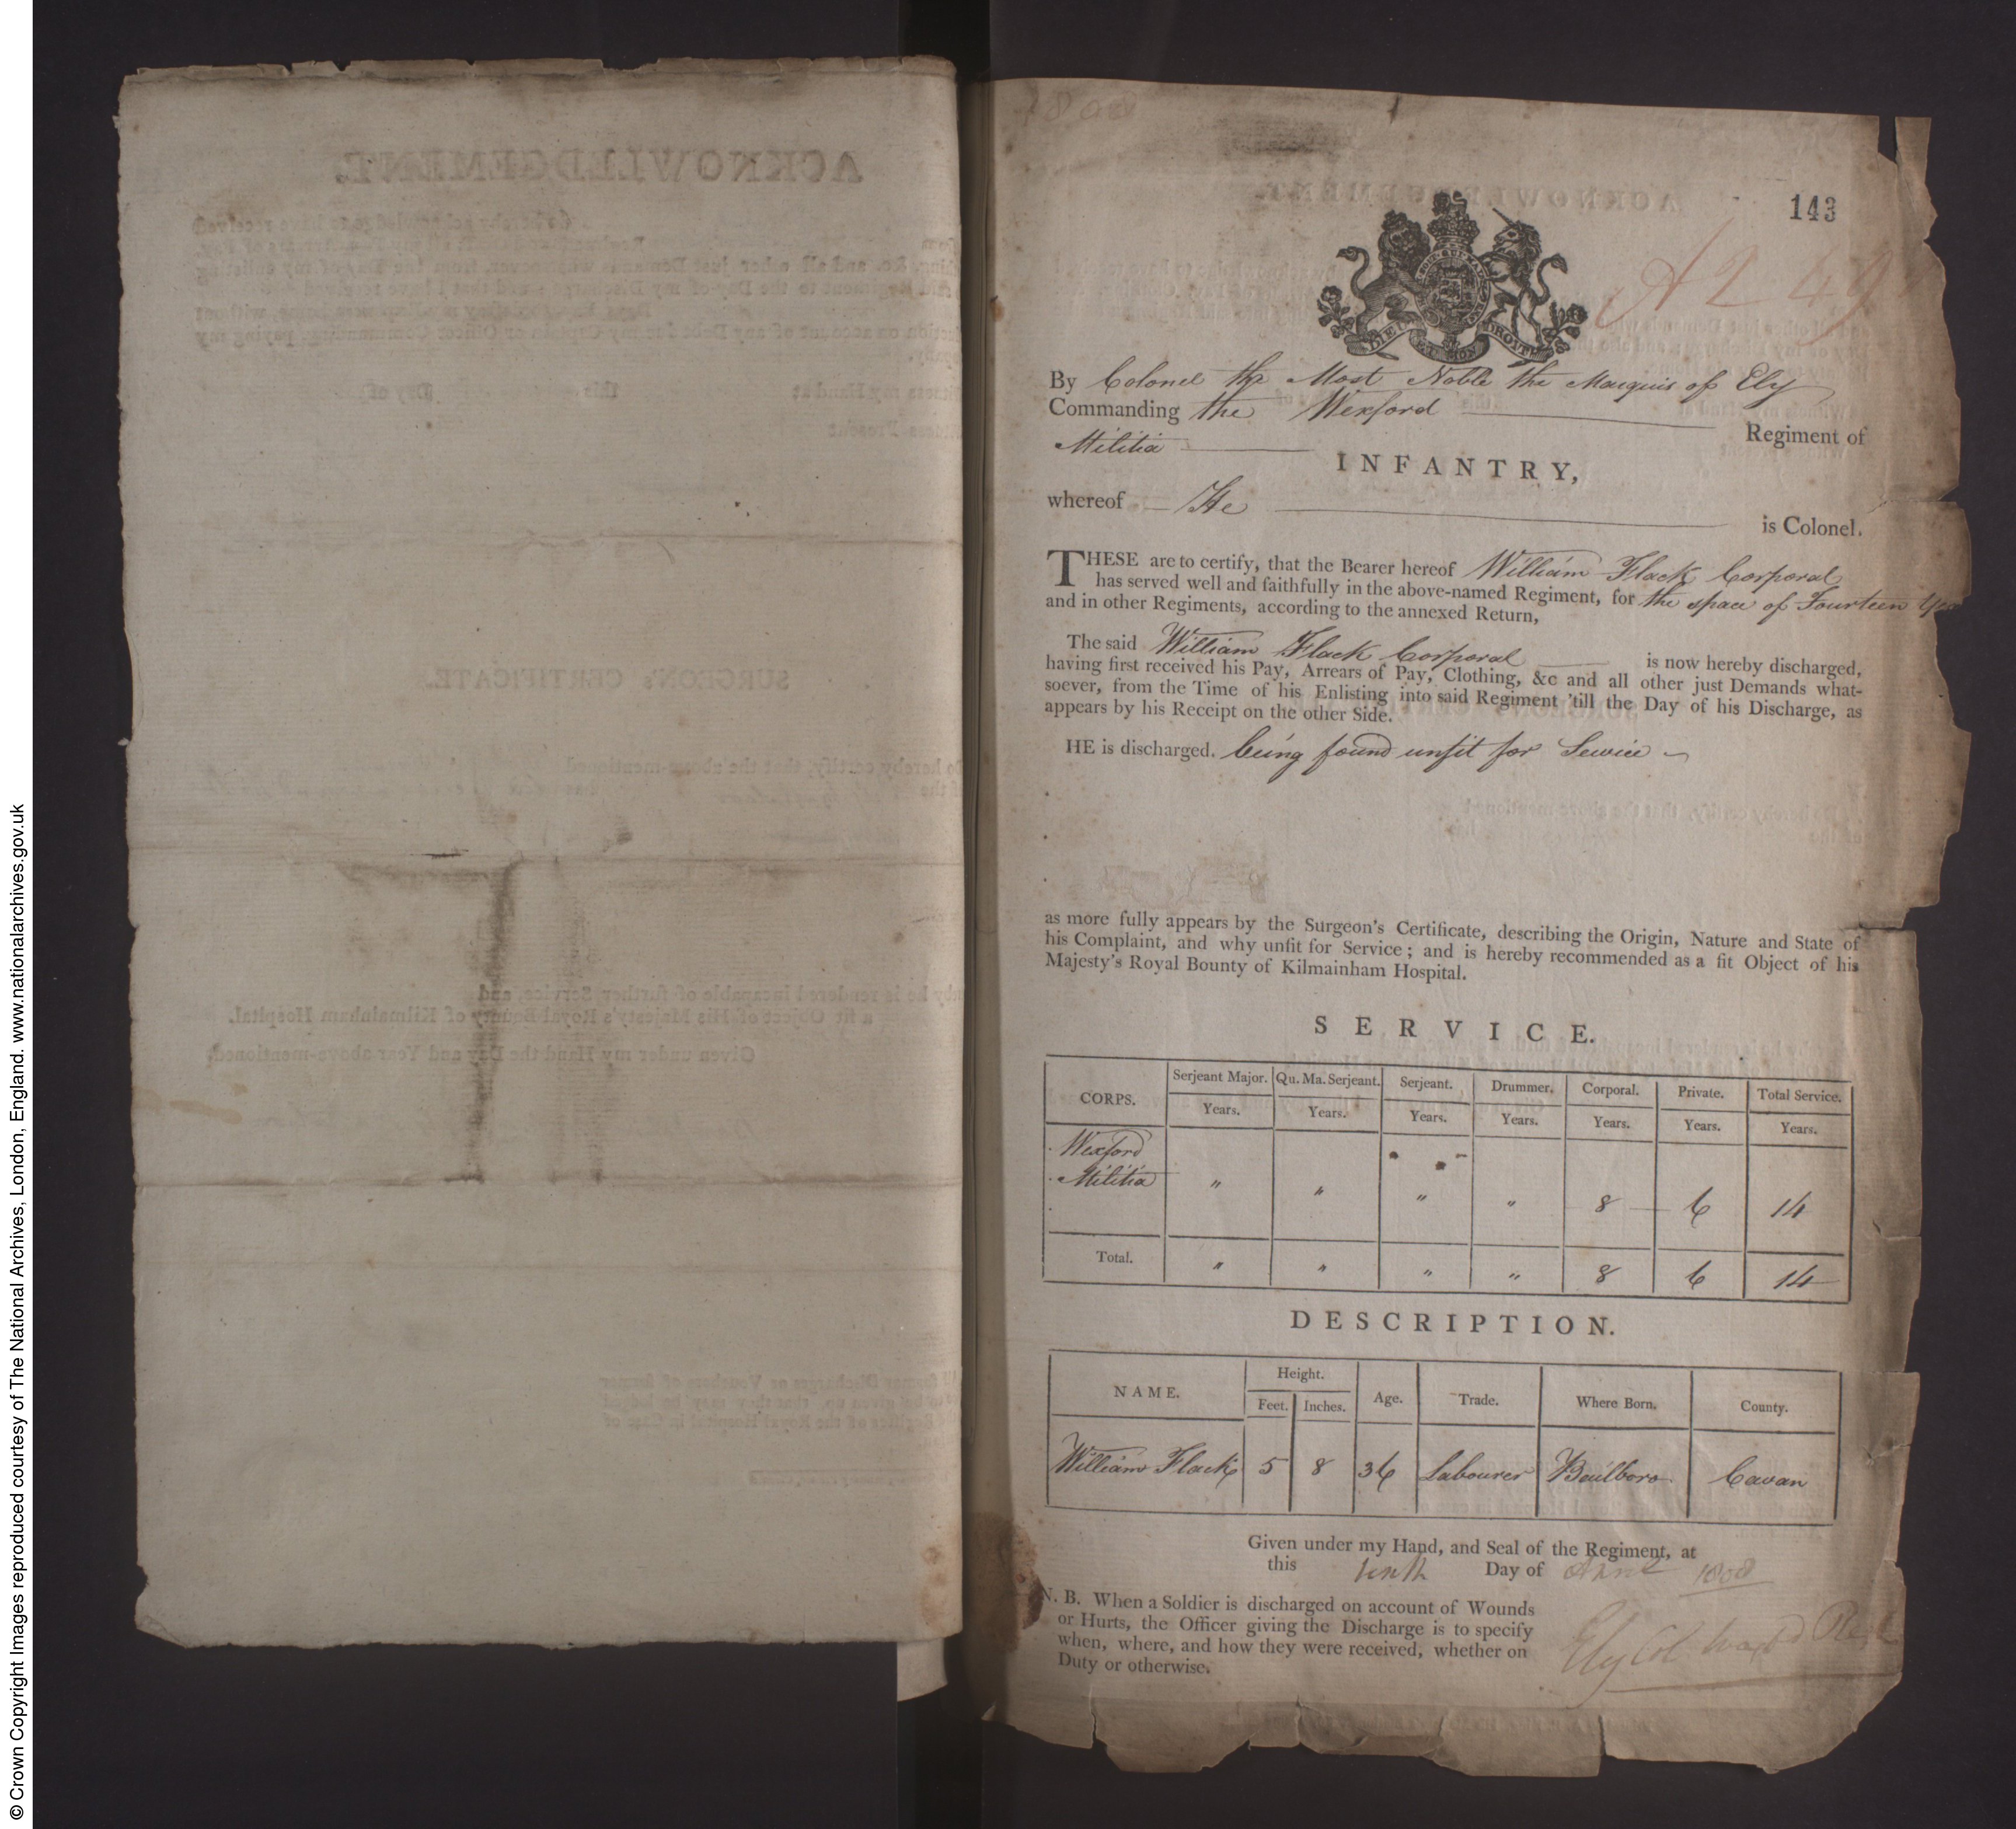 © Crown Copyright Images reproduced courtesy of The National Archives, London, England. www.nationalarchives.gov.uk
ACKNOWLEDGEMENT.
SURGEON's CERTIFICATE.
1808
143
A2 49
DIEU ET MON DROIT
By Colonel the Most Noble the Marquis of Ely
Commanding the Wexford Regiment of
Militia
INFANTRY,
whereof He is Colonel.
THESE are to certify, that the Bearer hereof William Flack Corporal
has served well and faithfully in the above-named Regiment, for the space of Fourteen
and in other Regiments, according to the annexed Return,
The said William Flack Corporal is now hereby discharged,
having first received his Pay, Arrears of Pay, Clothing, &c and all other just Demands what-
soever, from the Time of his Enlisting into said Regiment 'till the Day of his Discharge, as
appears by his Receipt on the other Side.
HE is discharged. being found unfit for Service
as more fully appears by the Surgeon's Certificate, describing the Origin, Nature and State of
his Complaint, and why unfit for Service; and is hereby recommended as a fit Object of his
Majesty's Royal Bounty of Kilmainham Hospital.
SERVICE.
CORPS. Serjeant Major. Qu. Ma. Serjeant. Serjeant. Drummer. Corporal. Private. Total Service.
Years. Years. Years. Years. Years. Years. Years.
Wexford
Militia " " " " 8 6 14
Total. " " " " 8 6 14
DESCRIPTION.
NAME. Height. Age. Trade. Where Born. County.
Feet. Inches.
William Flack 5 8 36 Labourer Bailboro Cavan
Given under my Hand, and Seal of the Regiment, at
this tenth Day of April 1808
N. B. When a Soldier is discharged on account of Wounds
or Hurts, the Officer giving the Discharge is to specify
when, where, and how they were received, whether on
Duty or otherwise.
Ely Col Wexford Regt